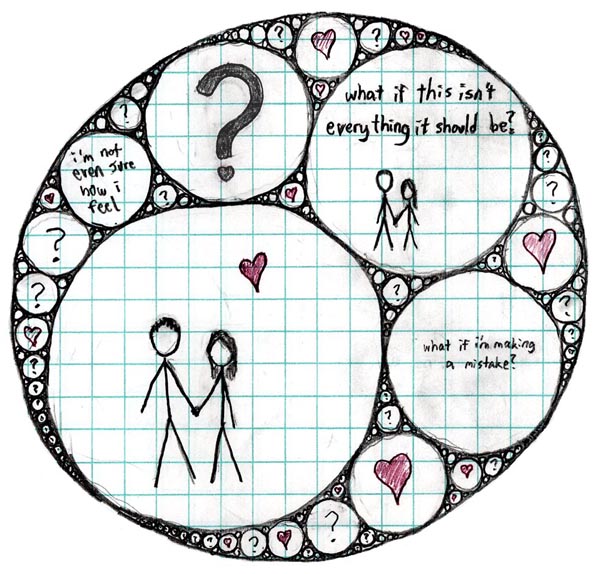 ?
what if this isn't
everything it should be?
i'm not
even sure
how i
feel
what if i'm making
a mistake?